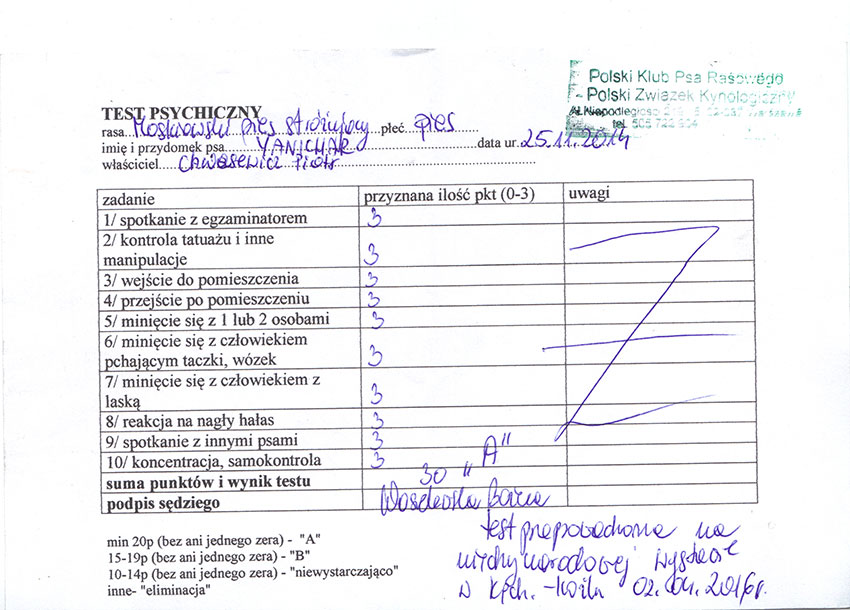 Polski Klub Psa Rasowego
- Polski Związek Kynologiczny
tel. 505 722 904
TEST PSYCHICZNY
rasa...Moskiewski pies stróżujący...płeć..pies
imię i przydomek psa...YANICHAR...data ur.25.11.2014
właściciel...Chwasewicz Piotr...
zadanie przyznana ilość pkt (0-3) uwagi
1/ spotkanie z egzaminatorem 3
2/ kontrola tatuażu i inne
manipulacje 3
3/ wejście do pomieszczenia 3
4/ przejście po pomieszczeniu 3
5/ minięcie się z 1 lub 2 osobami 3
6/ minięcie się z człowiekiem
pchającym taczki, wózek 3
7/ minięcie się z człowiekiem z
laską 3
8/ reakcja na nagły hałas 3
9/ spotkanie z innymi psami 3
10/ koncentracja, samokontrola 3
suma punktów i wynik testu 30 "A"
podpis sędziego
min 20p (bez ani jednego zera) - "A"
15-19p (bez ani jednego zera) - "B"
10-14p (bez ani jednego zera) - "niewystarczająco"
inne- "eliminacja"
test przeprowadzona na
międzynarodowej wystawie
w 02.04.2016r.